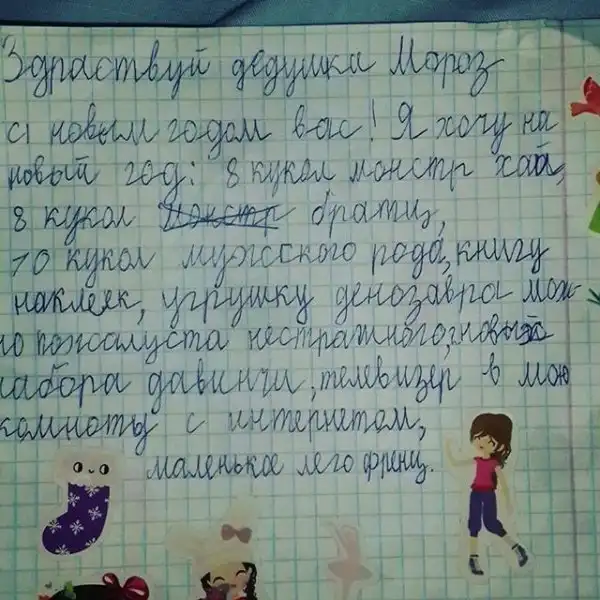 Здраствуй дедушка Мороз
С новым годом вас! Я хочу на
новый год: 8 кукол монстр хай,
8 кукол монстр братц,
10 кукол мужского рода, книгу
наклеек, угрушку денозавра мож-
но пожалуста нестрашного, новых
набора давинчи, телевизер в мою
комноты с интернетом,
маленькое лего френц.